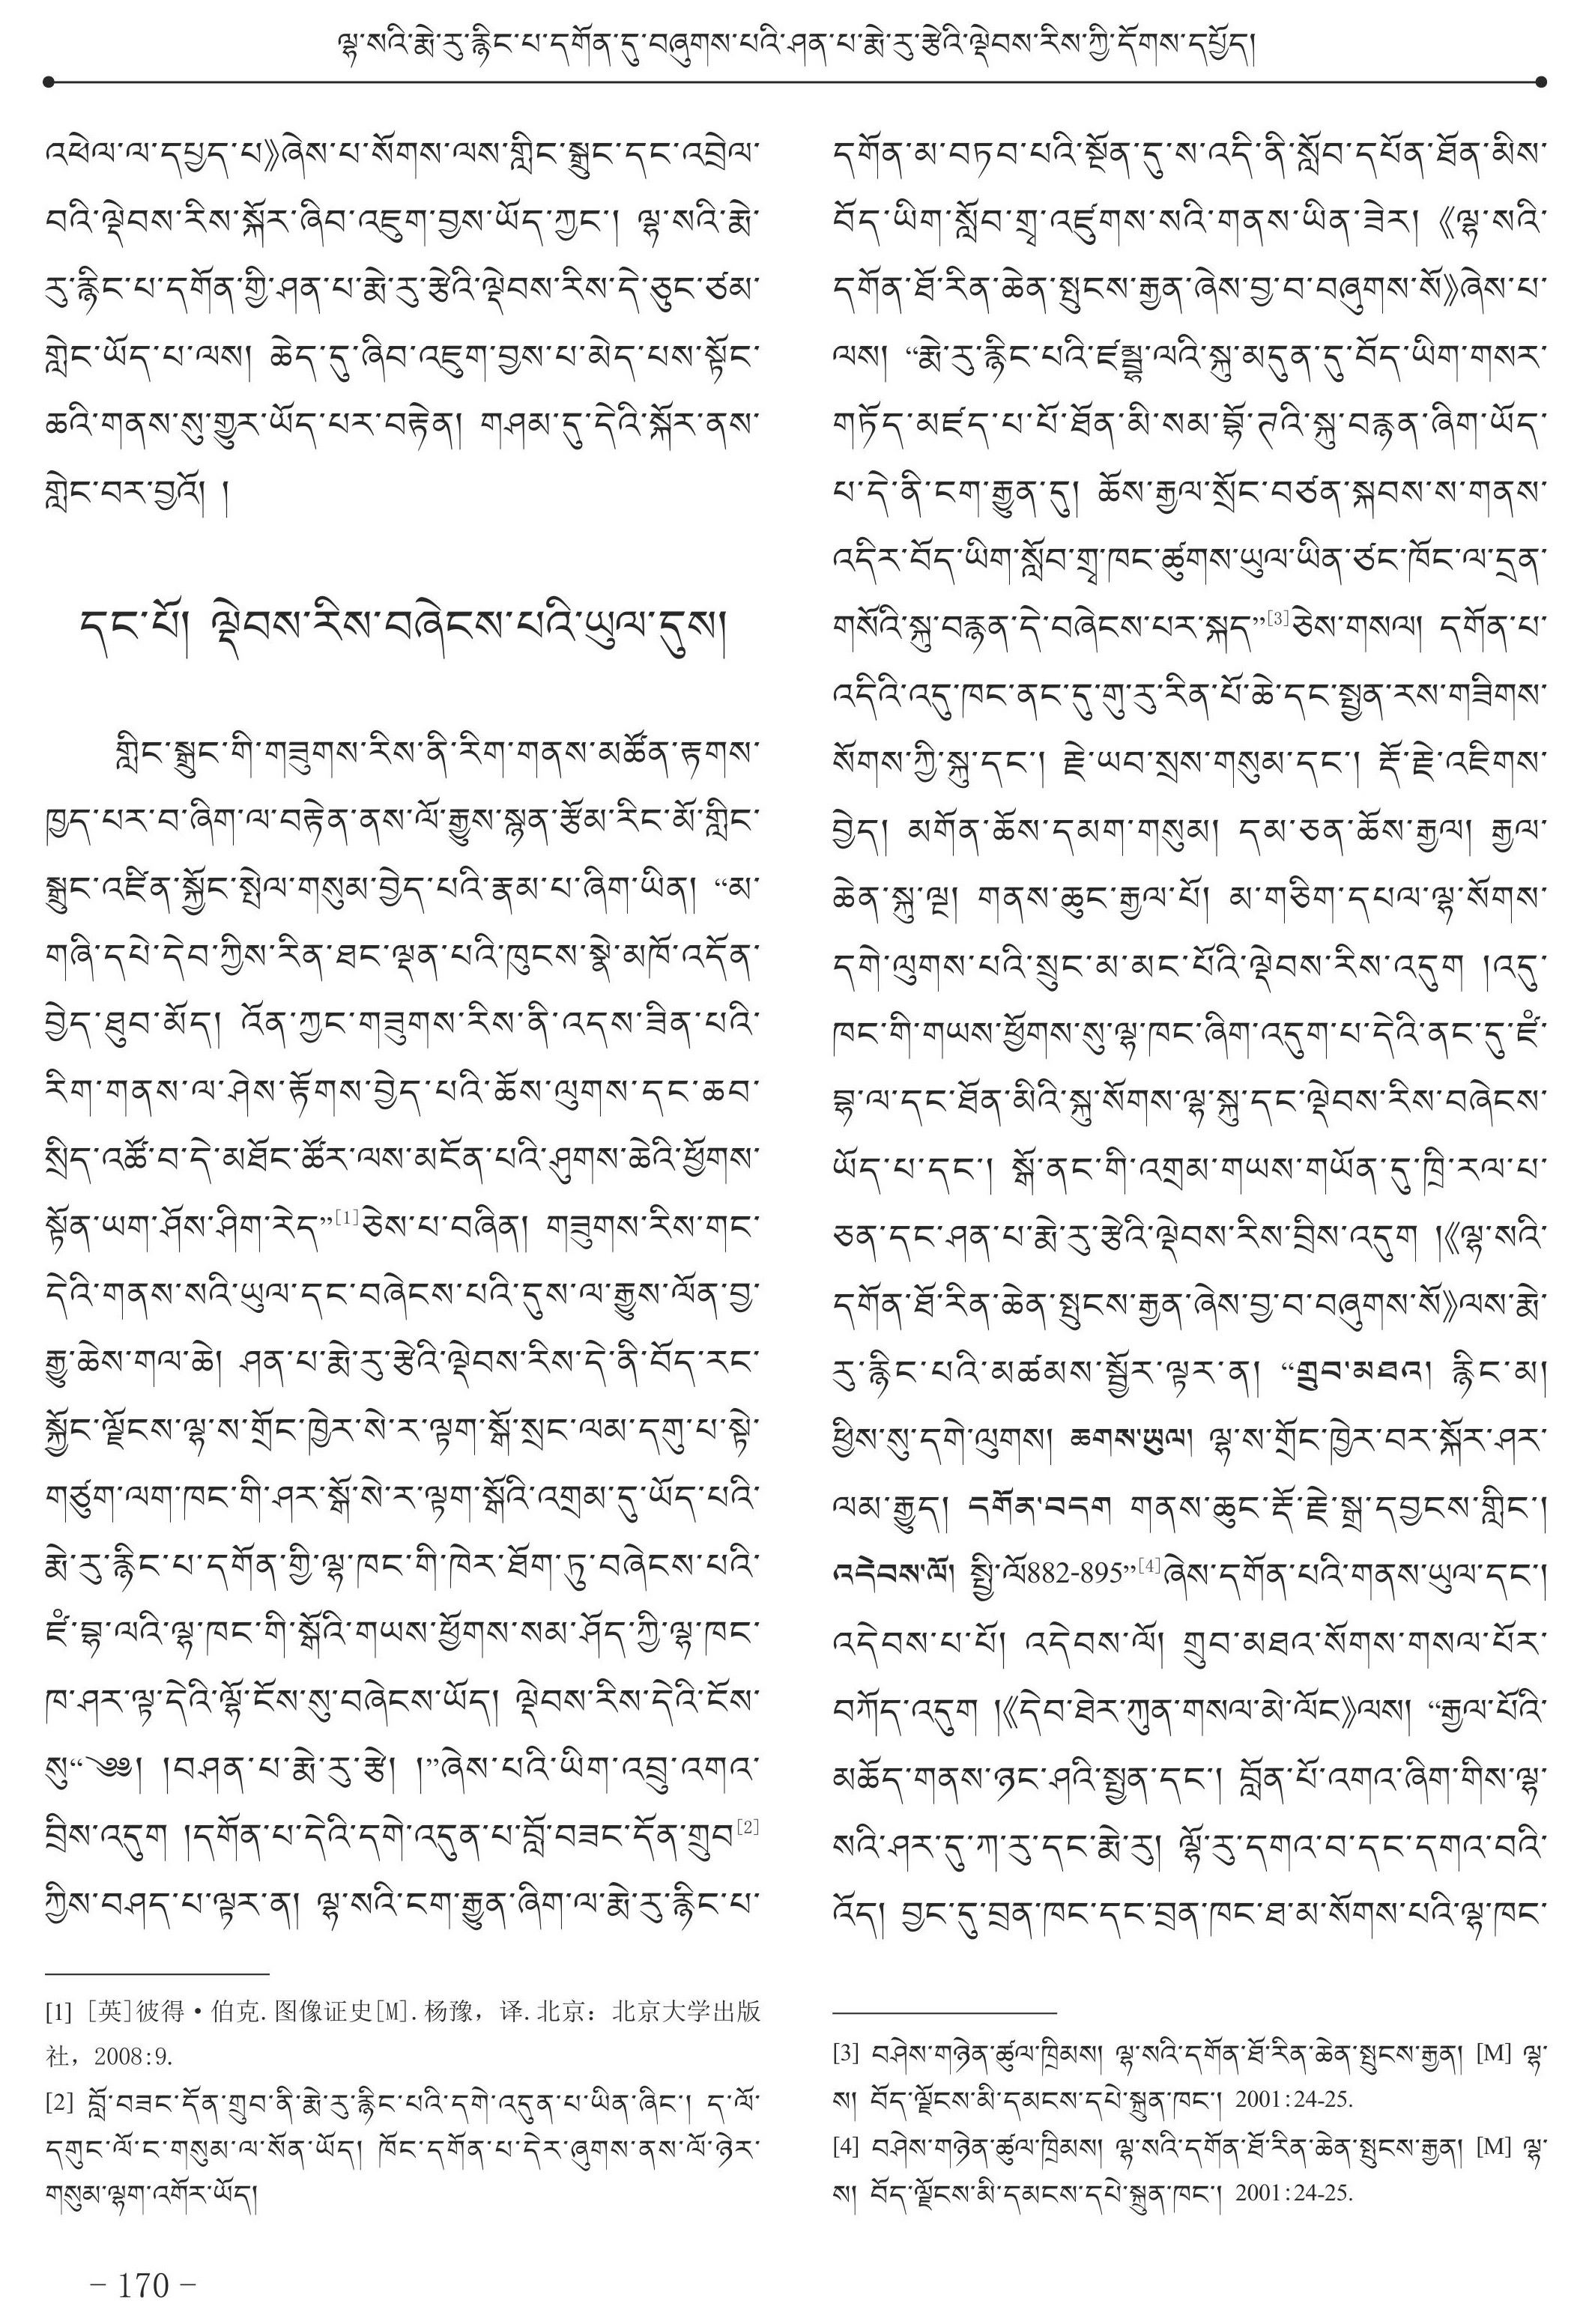 ལྷ་སའི་རྨེ་རུ་རྙིང་པ་དགོན་དུ་བཞུགས་པའི་ཤན་པ་རྨེ་རུ་རྩེའི་ལྡེབས་རིས་ཀྱི་དོགས་དཔྱོད།
འཕེལ་ལ་དཔྱད་པ》ཞེས་པ་སོགས་ལས་གླིང་སྒྲུང་དང་འབྲེལ་
བའི་ལྡེབས་རིས་སྐོར་ཞིབ་འཇུག་བྱས་ཡོད་ཀྱང་། ལྷ་སའི་རྨེ་
རུ་རྙིང་པ་དགོན་གྱི་ཤན་པ་རྨེ་རུ་རྩེའི་ལྡེབས་རིས་དེ་ཅུང་ཙམ་
གླེང་ཡོད་པ་ལས། ཆེད་དུ་ཞིབ་འཇུག་བྱས་པ་མེད་པས་སྟོང་
ཆའི་གནས་སུ་གྱུར་ཡོད་པར་བརྟེན། གཤམ་དུ་དེའི་སྐོར་ནས་
གླེང་བར་བྱའོ། །
དང་པོ། ལྡེབས་རིས་བཞེངས་པའི་ཡུལ་དུས།
གླིང་སྒྲུང་གི་གཟུགས་རིས་ནི་རིག་གནས་མཚོན་རྟགས་
ཁྱད་པར་བ་ཞིག་ལ་བརྟེན་ནས་ལོ་རྒྱུས་སྙན་རྩོམ་རིང་མོ་གླིང་
སྒྲུང་འཛིན་སྐྱོང་སྤེལ་གསུམ་བྱེད་པའི་རྣམ་པ་ཞིག་ཡིན། “མ་
གཞི་དཔེ་དེབ་ཀྱིས་རིན་ཐང་ལྡན་པའི་ཁུངས་སྣེ་མཁོ་འདོན་
བྱེད་ཐུབ་མོད། འོན་ཀྱང་གཟུགས་རིས་ནི་འདས་ཟིན་པའི་
རིག་གནས་ལ་ཤེས་རྟོགས་བྱེད་པའི་ཆོས་ལུགས་དང་ཆབ་
སྲིད་འཚོ་བ་དེ་མཐོང་ཚོར་ལས་མངོན་པའི་ཤུགས་ཆེའི་ཕྱོགས་
སྟོན་ཡག་ཤོས་ཤིག་རེད”[1]ཅེས་པ་བཞིན། གཟུགས་རིས་གང་
དེའི་གནས་སའི་ཡུལ་དང་བཞེངས་པའི་དུས་ལ་རྒྱུས་ལོན་བྱ་
རྒྱུ་ཆེས་གལ་ཆེ། ཤན་པ་རྨེ་རུ་རྩེའི་ལྡེབས་རིས་དེ་ནི་བོད་རང་
སྐྱོང་ལྗོངས་ལྷ་ས་གྲོང་ཁྱེར་སེ་ར་ལྟག་སྒོ་སྲང་ལམ་དགུ་པ་སྟེ་
གཙུག་ལག་ཁང་གི་ཤར་སྒོ་སེ་ར་ལྟག་སྒོའི་འགྲམ་དུ་ཡོད་པའི་
རྨེ་རུ་རྙིང་པ་དགོན་གྱི་ལྷ་ཁང་གི་ཁེར་ཐོག་ཏུ་བཞེངས་པའི་
ཛཾ་བྷ་ལའི་ལྷ་ཁང་གི་སྒོའི་གཡས་ཕྱོགས་སམ་ཤོད་ཀྱི་ལྷ་ཁང་
ཁ་ཤར་ལྟ་དེའི་ལྷོ་ངོས་སུ་བཞེངས་ཡོད། ལྡེབས་རིས་དེའི་ངོས་
སུ“༄༅། །བཤན་པ་རྨེ་རུ་རྩེ། །”ཞེས་པའི་ཡིག་འབྲུ་འགའ་
བྲིས་འདུག །དགོན་པ་དེའི་དགེ་འདུན་པ་བློ་བཟང་དོན་གྲུབ[2]
ཀྱིས་བཤད་པ་ལྟར་ན། ལྷ་སའི་ངག་རྒྱུན་ཞིག་ལ་རྨེ་རུ་རྙིང་པ་
[1] [英]彼得·伯克.图像证史[M].杨豫，译.北京：北京大学出版
社，2008:9.
[2] བློ་བཟང་དོན་གྲུབ་ནི་རྨེ་རུ་རྙིང་པའི་དགེ་འདུན་པ་ཡིན་ཞིང་། ད་ལོ་
དགུང་ལོ་ང་གསུམ་ལ་སོན་ཡོད། ཁོང་དགོན་པ་དེར་ཞུགས་ནས་ལོ་ཉེར་
གསུམ་ལྷག་འགོར་ཡོད།
དགོན་མ་བཏབ་པའི་སྔོན་དུ་ས་འདི་ནི་སློབ་དཔོན་ཐོན་མིས་
བོད་ཡིག་སློབ་གྲྭ་འཛུགས་སའི་གནས་ཡིན་ཟེར། 《ལྷ་སའི་
དགོན་ཐོ་རིན་ཆེན་སྤུངས་རྒྱན་ཞེས་བྱ་བ་བཞུགས་སོ》ཞེས་པ་
ལས། “རྨེ་རུ་རྙིང་པའི་ཛམྦྷ་ལའི་སྐུ་མདུན་དུ་བོད་ཡིག་གསར་
གཏོད་མཛད་པ་པོ་ཐོན་མི་སམ་བྷོ་ཊའི་སྐུ་བརྙན་ཞིག་ཡོད་
པ་དེ་ནི་ངག་རྒྱུན་དུ། ཆོས་རྒྱལ་སྲོང་བཙན་སྐབས་ས་གནས་
འདིར་བོད་ཡིག་སློབ་གྲྭ་ཁང་ཚུགས་ཡུལ་ཡིན་ཙང་ཁོང་ལ་དྲན་
གསོའི་སྐུ་བརྙན་དེ་བཞེངས་པར་སྐད”[3]ཅེས་གསལ། དགོན་པ་
འདིའི་འདུ་ཁང་ནང་དུ་གུ་རུ་རིན་པོ་ཆེ་དང་སྤྱན་རས་གཟིགས་
སོགས་ཀྱི་སྐུ་དང་། རྗེ་ཡབ་སྲས་གསུམ་དང་། རྡོ་རྗེ་འཇིགས་
བྱེད། མགོན་ཆོས་དམག་གསུམ། དམ་ཅན་ཆོས་རྒྱལ། རྒྱལ་
ཆེན་སྐུ་ལྔ། གནས་ཆུང་རྒྱལ་པོ། མ་གཅིག་དཔལ་ལྷ་སོགས་
དགེ་ལུགས་པའི་སྲུང་མ་མང་པོའི་ལྡེབས་རིས་འདུག །འདུ་
ཁང་གི་གཡས་ཕྱོགས་སུ་ལྷ་ཁང་ཞིག་འདུག་པ་དེའི་ནང་དུ་ཛཾ་
བྷ་ལ་དང་ཐོན་མིའི་སྐུ་སོགས་ལྷ་སྐུ་དང་ལྡེབས་རིས་བཞེངས་
ཡོད་པ་དང་། སྒོ་ནང་གི་འགྲམ་གཡས་གཡོན་དུ་ཁྲི་རལ་པ་
ཅན་དང་ཤན་པ་རྨེ་རུ་རྩེའི་ལྡེབས་རིས་བྲིས་འདུག །《ལྷ་སའི་
དགོན་ཐོ་རིན་ཆེན་སྤུངས་རྒྱན་ཞེས་བྱ་བ་བཞུགས་སོ》ལས་རྨེ་
རུ་རྙིང་པའི་མཚམས་སྦྱོར་ལྟར་ན། “གྲུབ་མཐའ། རྙིང་མ།
ཕྱིས་སུ་དགེ་ལུགས། ཆགས་ཡུལ། ལྷ་ས་གྲོང་ཁྱེར་བར་སྐོར་ཤར་
ལམ་རྒྱུད། དགོན་བདག གནས་ཆུང་རྡོ་རྗེ་སྒྲ་དབྱངས་གླིང་།
འདེབས་ལོ། སྤྱི་ལོ882-895”[4]ཞེས་དགོན་པའི་གནས་ཡུལ་དང་།
འདེབས་པ་པོ། འདེབས་ལོ། གྲུབ་མཐའ་སོགས་གསལ་པོར་
བཀོད་འདུག །《དེབ་ཐེར་ཀུན་གསལ་མེ་ལོང》ལས། “རྒྱལ་པོའི་
མཆོད་གནས་ཉང་ཤའི་སྤྱན་དང་། བློན་པོ་འགའ་ཞིག་གིས་ལྷ་
སའི་ཤར་དུ་ཀ་རུ་དང་རྨེ་རུ། ལྷོ་རུ་དགའ་བ་དང་དགའ་བའི་
འོད། བྱང་དུ་བྲན་ཁང་དང་བྲན་ཁང་ཐ་མ་སོགས་པའི་ལྷ་ཁང་
[3] བཤེས་གཉེན་ཚུལ་ཁྲིམས། ལྷ་སའི་དགོན་ཐོ་རིན་ཆེན་སྤུངས་རྒྱན། [M] ལྷ་
ས། བོད་ལྗོངས་མི་དམངས་དཔེ་སྐྲུན་ཁང་། 2001:24-25.
[4] བཤེས་གཉེན་ཚུལ་ཁྲིམས། ལྷ་སའི་དགོན་ཐོ་རིན་ཆེན་སྤུངས་རྒྱན། [M] ལྷ་
ས། བོད་ལྗོངས་མི་དམངས་དཔེ་སྐྲུན་ཁང་། 2001:24-25.
– 170 –